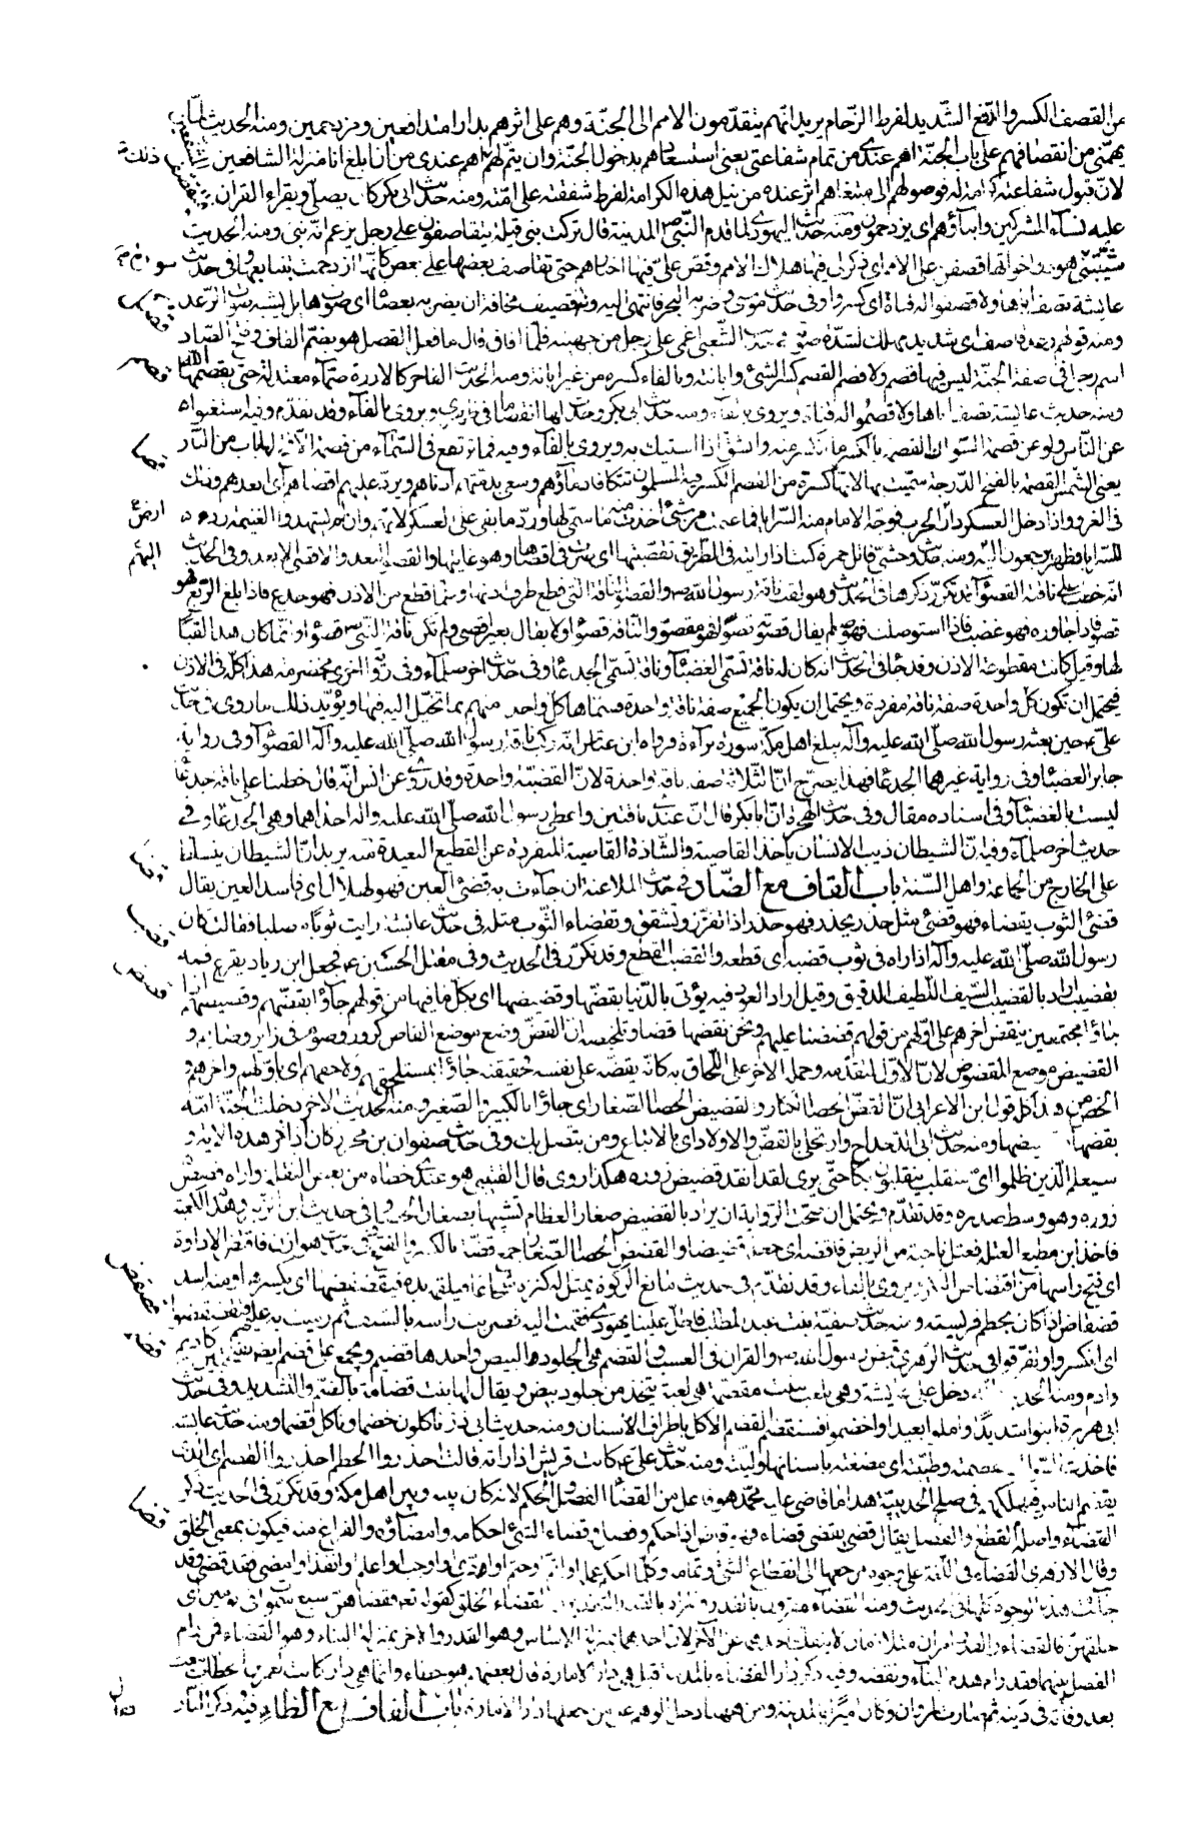 من القصف الكسر والدفع الشديد لفرط الزحام يريد انهم يتقدمون الامم الى الجنة وهم على اثرهم بدارا متدافعين ومزدحمين ومنه الحديث لما
يهمنى من انقصافهم على باب الجنة اهم عندى من تمام شفاعتى يعنى استسعادهم بدخول الجنة وان يتم لهم اهم عندى من ان ابلغ انا منزلة الشافعين
لان قبول شفاعته كرامة له فوصولهم الى مبتغاهم اثر عنده من نيل هذه الكرامة لفرط شفقته على امته ومنه حديث ابى بكر كان يصلى ويقراء القران
عليه نساء المشركين وابناؤهم اى يزدحمون ومنه حديث اليهودى لما قدم النبى المدينة قال تركت بنى قيلة يتقاصفون على رجل يزعم انه نبى ومنه الحديث
شيبتنى هود واخواتها قصفن على الامم اى ذكر لى فيها هلاك الامم وقص على فيها اخبارهم حتى تقاصف بعضها على بعض كانها ازدحمت بتتابعها وفى حديث
عايشة تصف اباها ولا قصفوا له قناة اى كسروا وفى حديث موسى وضربه البحر فانتهى اليه وله قصيف مخافة ان يضربه بعصاه اى صوت هايل يشبه صوت الرعد
ومنه قولهم رعد قاصف اى شديد مهلك لشدة صوته حديث الشعبى اغمى على رجل من جهينه فلما افاق قال ما فعل القصل هو بضم القاف وفتح الصاد
اسم رجل فى صفة الجنة ليس فيها قصم ولا فصم القصم كسر الشئ وابانته وبالفاء كسره من غير ابانة ومنه الحديث الفاجر كالارزة صماء معتدلة حتى يقصمها الله
ومنه حديث عايشة تصف اباها ولا قصموا له قناة ويروى بالفاء ومنه حديث ابى بكر وجدت انقصاما فى ظهرى ويروى بالفاء وقد تقدم وفيه استغنوا
عن الناس ولو عن قصمة السواك القصمة بالكسر ما انكسر منه وانشق اذا استيك به ويروى بالفاء وفيه فما ترتفع فى السماء من قصمة الا فتح لها باب من النار
يعنى الشمس القصمة بالفتح الدرجة سميت بها لانها كسرة من القصم الكسر فيه المسلمون تتكافا دماؤهم ويسعى بذمتهم ادناهم ويرد عليهم اقصاهم اى ابعدهم وذلك
فى الغزو اذا دخل العسكر دار الحرب فوجه الامام منه السرايا فما غنمت من شئ اخذت منه ما سمى لها ورد ما بقى على العسكر لانهم وان لم يشهدوا الغنيمة ردء
للسرايا وظهر يرجعون اليهم ومنه حديث وحشى قاتل حمزة كنت اذا رايته فى الطريق تقصيتها اى صرت فى اقصاها وهو غايتها والقصو البعد والاقصى الابعد وفى الحديث
انه خطب على ناقته القصواء قد تكرر ذكرها فى الحديث وهو لقب ناقة رسول الله ص والقصواء الناقة التى قطع طرف اذنها وكلما قطع من الاذن فهو جدع فاذا بلغ الربع فهو
قصو فاذا جاوزه فهو عضب فاذا استوصلت فهو صلم يقال قصوته قصوا فهو مقصو والناقة قصواء ولا يقال بعير اقصى ولم تكن ناقة النبى ص قصواء وانما كان هذا لقبا
لها وقيل كانت مقطوعة الاذن وقد جاء فى الحديث انه كان له ناقة تسمى العضباء وناقة تسمى الجدعاء وفى حديث اخر صلماء وفى رواية اخرى مخضرمة هذا كله فى الاذن
فيحتمل ان تكون كل واحدة صفة ناقة مفردة ويحتمل ان يكون الجميع صفة ناقة واحدة فسماها كل واحد منهم بما تخيل اليه فيها ويؤيد ذلك ما روى فى حديث
على حين بعثه رسول الله صلى الله عليه وآله يبلغ اهل مكة سورة براءة فرواه ابن عباس انه ركب ناقة رسول الله صلى الله عليه وآله القصواء وفى رواية
جابر العضباء وفى رواية غيرهما الجدعاء فهذا يصرح ان الثلاثة صفة ناقة واحدة لان القضية واحدة وقد روى عن انس انه قال خطبنا على ناقة جدعاء
ليست بالعضباء وفى اسناده مقال وفى حديث الهجرة ان ابا بكر قال ان عندى ناقتين واعطى رسول الله صلى الله عليه واله احداهما وهى الجدعاء وفى
حديث اخر صلماء وفيه ان الشيطان ذيب الانسان ياخذ القاصية والشاذة القاصية المنفردة عن القطيع البعيدة منه يريد ان الشيطان يتسلط
على الخارج من الجماعة واهل السنة باب القاف مع الضاد فى حديث الملاعنة ان جاءت به قضئ العين فهو لهلال اى فاسد العين يقال
قضئ الثوب يقضاء فهو قضئ مثل حذر يحذر فهو حذر اذا تفزر وتشقق وتقضاء الثوب مثله فى حديث عائشة رايت ثوبا مصلبا فقالت كان
رسول الله صلى الله عليه وآله اذا راه فى ثوب قضبه اى قطعه والقضب القطع وقد تكرر فى الحديث وفى مقتل الحسين ع فجعل ابن زياد يقرع فمه
بقضيب اراد بالقضيب السيف اللطيف الدقيق وقيل اراد العود فيه يؤتى بالدنيا بقضها وقضيضها اى بكل ما فيها من قولهم جاؤا بقضهم وقضيضهم اذا
جاؤا مجتمعين ينقض اخرهم على اولهم من قولهم قضضنا عليهم ونحن نقضها قضا وتلخيصه ان القض وضع موضع القاض كزور وصوم فى زاير وصايم و
القضيض موضع المقضوض لان الاول لتقدمه وحمله الاخر على اللحاق به كانه يقضه على نفسه فحقيقته جاؤا بمستلحقهم ولاحقهم اى باولهم واخرهم و
الخص من هذا كله قول ابن الاعرابى ان القض الحصا الكبار والقضيض الحصا الصغار اى جاؤا بالكبير والصغير ومنه الحديث الاخر دخلت الجنة امة
بقضها وقضيضها ومنه حديث ابى الدحداح وارتحلى بالقض والاولاد اى بالاتباع ومن يتصل بك وفى حديث صفوان بن محرز كان اذا قرا هذه الاية و
سيعلم الذين ظلموا اى منقلب ينقلبون بكا حتى يرى لقد انقد قضيض زوره هكذا روى قال القتيبى هو عندى خطاء من بعض النقلة واراه قصص
زوره وهو وسط صدره وقد تقدم ويحتمل ان صحت الرواية ان يراد بالقضيض صغار العظام تشبيها بصغار الحصا وفى حديث ابن الزبير وهدم الكعبة
فاخذ ابن مطيع العتلة فعتل ناحية من الربض فاقضه اى جعله قضضا والقضض الحصا الصغار جمع قضة بالكسر والفتح وفى حديث هوازن فاقتض الاداوة
اى فتح راسها من اقتضاض البكر ويروى بالفاء وقد تقدم فى حديث مانع الزكوة يمثل له كنزه شجاعا فيلقمه يده فيقضقضها اى يكسرها ومنه اسد
قضقاض اذا كان يحطم فريسته ومنه حديث صفية بنت عبد المطلب فاطل علينا يهودى فقمت اليه فضربت راسه بالسيف ثم رميت به عليهم فتقضقضوا
اى انكسروا وتفرقوا فى حديث الزهرى قبض رسول الله ص والقران فى العسب والقضم هى الجلود البيض واحدها قضيم ويجمع على قضم ايضا بفتحتين كاديم
وادم ومنه الحديث انه دخل على عايشة وهى تلعب ببنت مقضمة هى لعبة تتخذ من جلود بيض ويقال لها بنت قضامة بالضم والتشديد وفى حديث
ابى هريرة ابنوا شديدا واملوا بعيدا واخضموا فسنقضم القضم الاكل باطراف الاسنان ومنه حديث ابى ذر تاكلون خضما وناكل قضما ومنه حديث عايشة
فاخذت السواك فقضمته وطيبته اى مضغته باسنانها ولينته ومنه حديث على ع كانت قريش اذا راته قالت احذروا الحطم احذروا القضم اى الذى
يقضم الناس فيهلكهم فى صلح الحديبية هذا ما قاضى عليه محمد هو فاعل من القضاء الفصل والحكم لانه كان بينه وبين اهل مكة وقد تكرر فى الحديث ذكر
القضاء واصله القطع والفصل يقال قضى يقضى قضاء فهو قاض اذا حكم وفصل وقضاء الشئ احكامه وامضاؤه والفراغ منه فيكون بمعنى الخلق
وقال الازهرى القضاء فى اللغة على وجوه مرجعها الى انقطاع الشئ وتمامه وكل ما احكم عمله او اتم او ختم او ادى او اوجب او اعلم او انفذ او امضى فقد قضى وقد
جاءت هذه الوجوه كلها فى الحديث ومنه القضاء المقرون بالقدر والمراد بالقدر التقدير وبالقضاء الخلق كقوله تعالى فقضاهن سبع سموات فى يومين اى
خلقهن فالقضاء والقدر امران متلازمان لا ينفك احدهما عن الآخر لان احدهما بمنزلة الاساس وهو القدر والاخر بمنزلة البناء وهو القضاء فمن رام
الفصل بينهما فقد رام هدم البناء ونقضه وفيه ذكر دار القضاء بالمدينة قيل هى دار الامارة قال بعضهم هو خطاء وانما هى دار كانت لعمر بن الخطاب بيعت
بعد وفاته فى دينه ثم صارت لمروان وكان اميرا بالمدينة ومن ههنا دخل الوهم على من جعلها دار الامارة باب القاف مع الظاء فيه ذكر النار
قصل
قصم
قصا
قضا
قضب
قضض
قضقض
قضم
قضا